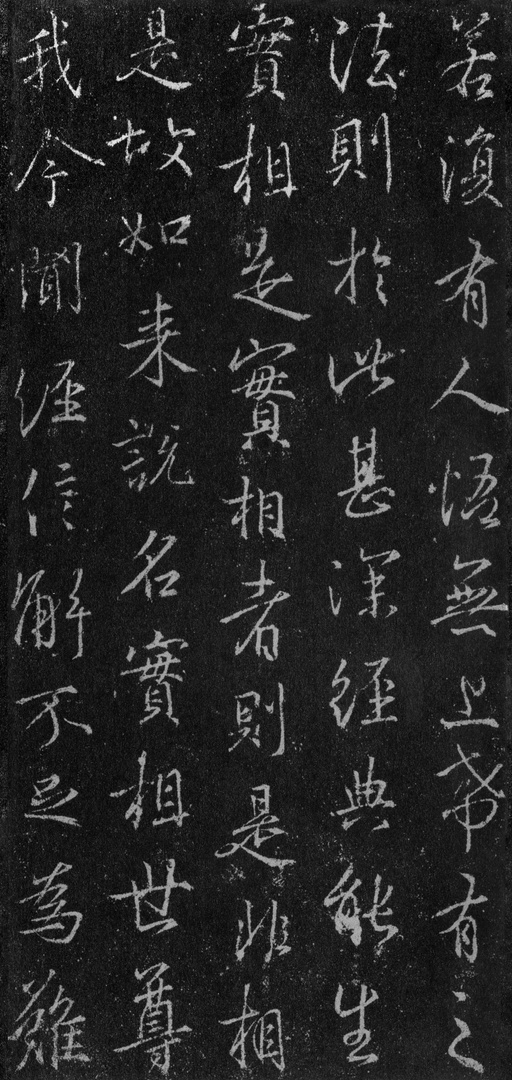 若復有人悟無上希有之
法則於此甚深經典能生
實相是實相者則是非相
是故如来說名實相世尊
我今聞經信解不足為難